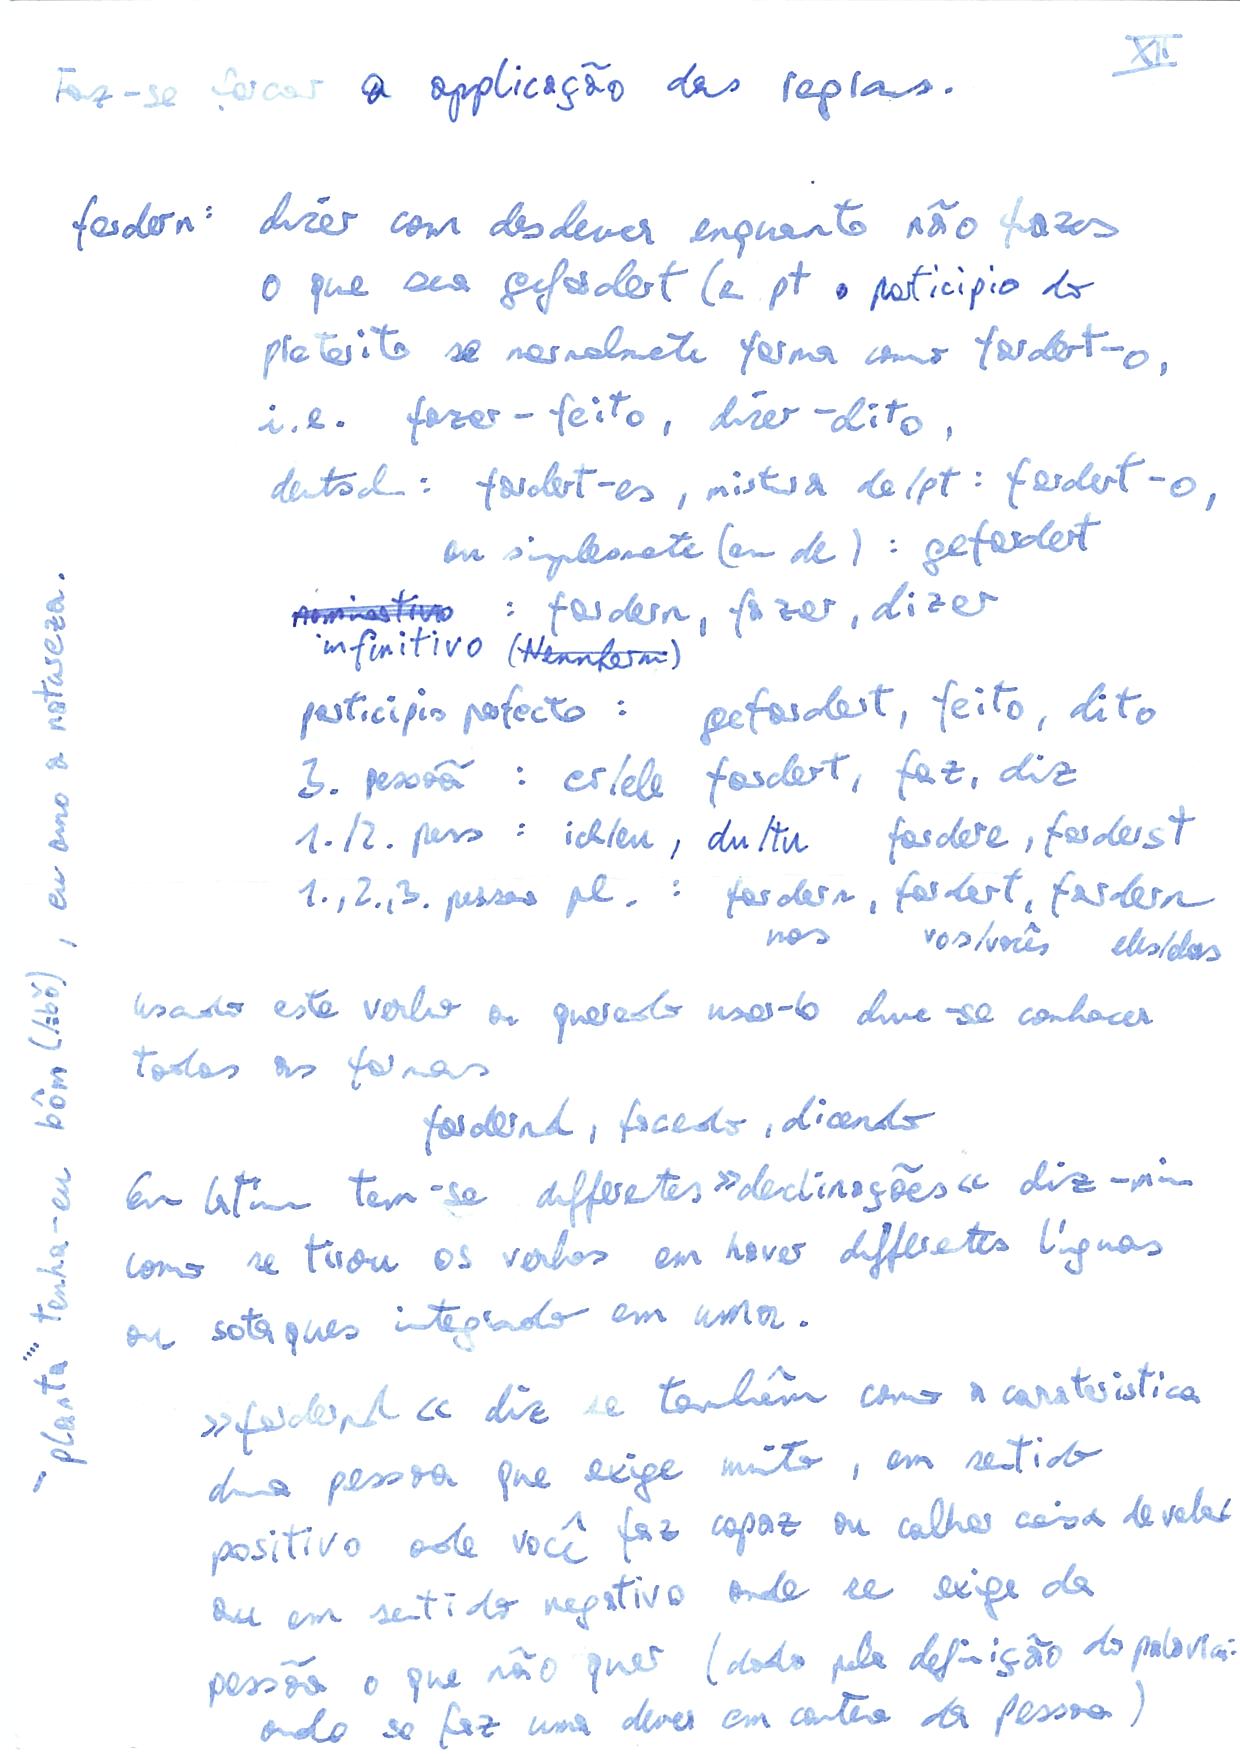 XII
Faz-se forcar a applicação das reglas.
fordern: dizer com desdever enquanto não fazes
o que sea gefordert (e pt o participio do
preterito se normalmete forma como fordert-o,
i.e. fazer-feito, dizer-dito,
deutsch: fordert-es, mistura de/pt: fordert-o,
ou simplesmete (em de): gefordert
nominativo : fordern, fazer, dizer
infinitivo (Nennform)
participio pefecto : gefordert, feito, dito
3. pessoã : er/ele fordert, faz, diz
1./2. pess : ich/eu, du/tu fordere, forderst
1.,2.,3. pessoa pl. : fordern, fordert, fordern
nos vos/vocês eles/elas
usando este verbo ou querendo usar-lo deve-se conhecer
todas as formas
fordernd, facedo, dicendo
Em latim tem-se differetes »declinações« diz-mim
como se tirou os verbos em haver differetes línguas
ou sotaques integrado em uma.
»fordernd« diz se também como a carateristica
duma pessoa que exige muito, em sentido
positivo onde você faz capaz ou colher coisa de valor
ou em sentido negativo onde se exige da
pessõa o que não quer (dado pela definição do palavra:
onde se faz uma dever em contra da pessoa)
"planta" tenha-eu bôm, eu amo a natureza.